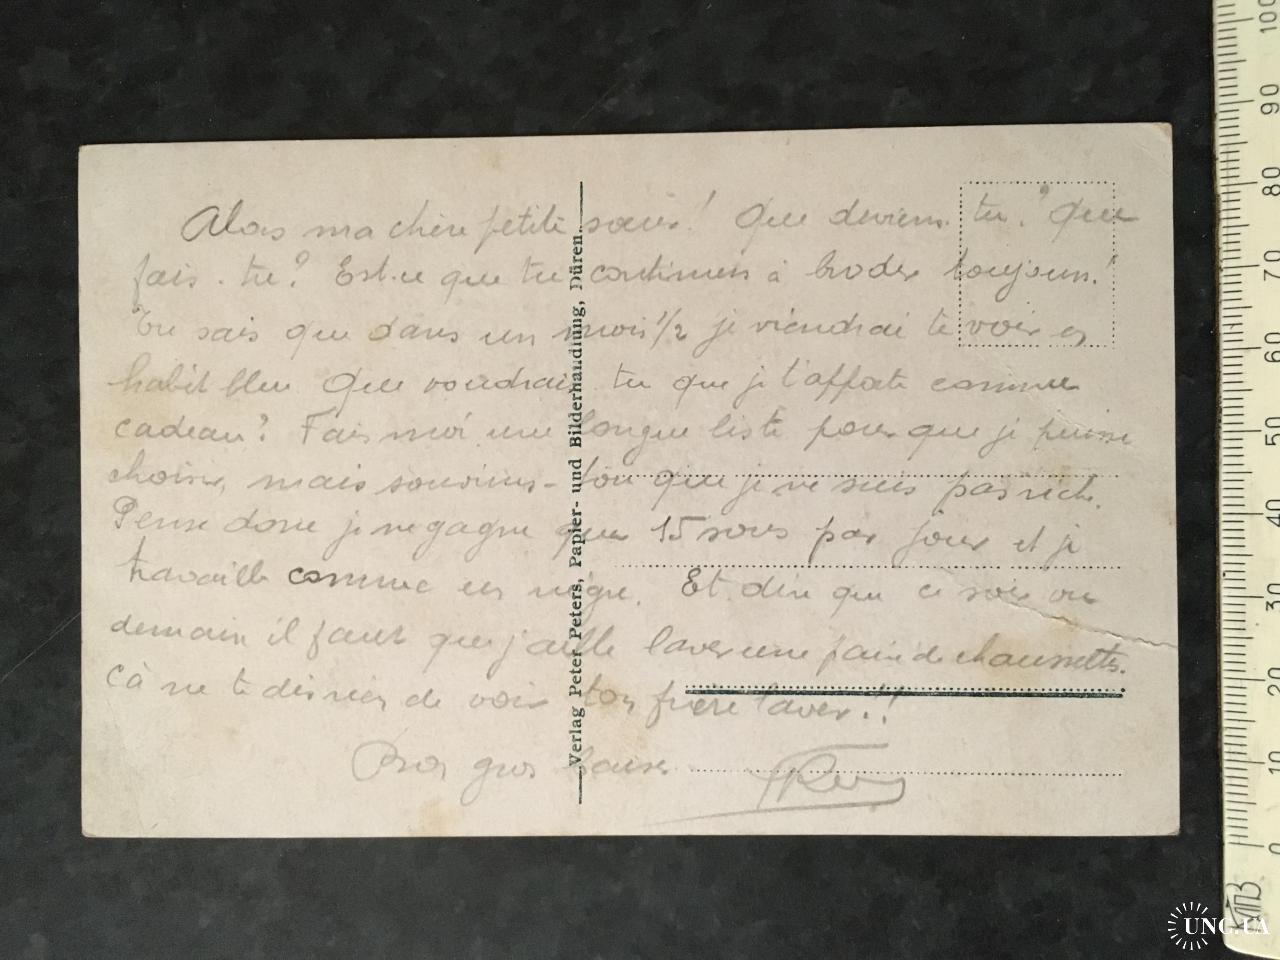 Alors ma chère petite sœur! Que deviens-tu? Que
fais-tu? Est-ce que tu continues à broder toujours!
Tu sais que dans un mois 1/2 je viendrai te voir en
habit bleu Que voudrais tu que je t'apporte comme
cadeau? Fais moi une longue liste pour que je puisse
choisir, mais souviens-toi que je ne suis pas riche.
Pense donc je ne gagne que 15 sous par jour et je
travaille comme un nègre. Et dire que ce soir ou
demain il faut que j'aille laver une paire de chaussettes.
Cà ne te dis rien de voir ton frère laver!!
Bons gros baisers
Verlag Peter Peters, Papier- und Bilderhandlung, Düren.
100
90
80
70
60
50
40
30
20
10
0
UNC.UA